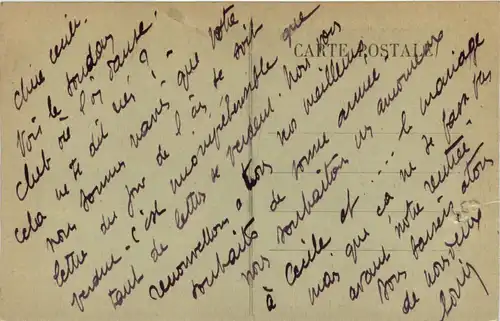 CARTE POSTALE
Chère Cécile
Vois le soudar
chef où l'on danse!
cela ne te dit rien? -
nous sommes navrés que votre
lettre du jour de l'an se soit
verdue. C'est incompréhensible que
tant de lettres se perdent. Nous vous
renouvellons à tous nos meilleurs
souhaits de bonne année,
nous souhaitons un amoureux
à Cécile et .... le mariage
mais que ça ne se fasse pas
avant notre rentrée.
Bons baisers
de nous deux